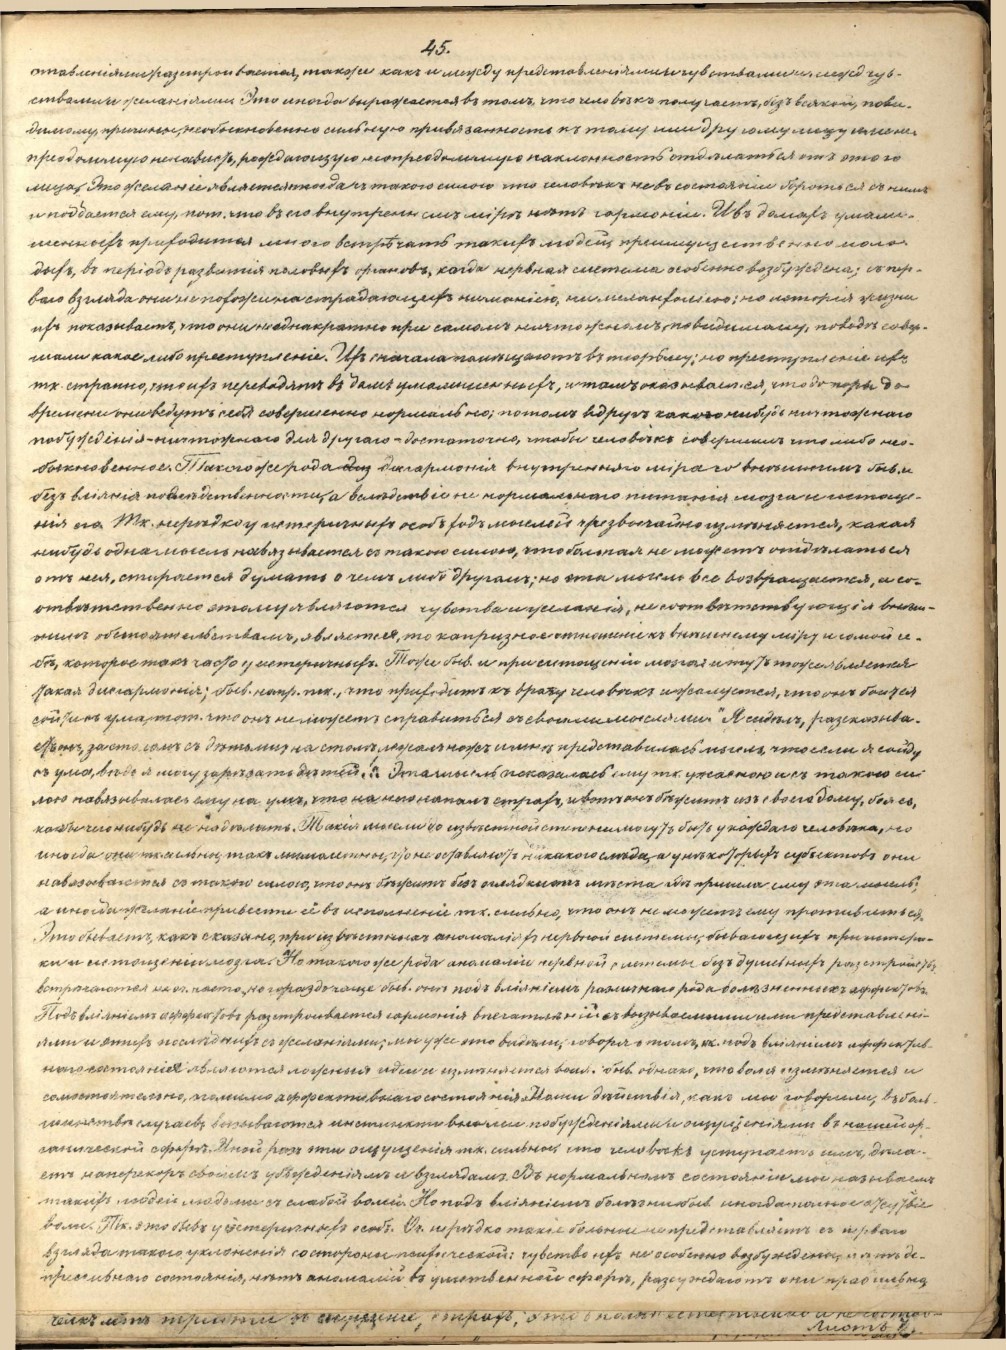 45.
ставленіями разстроивается, также какъ и между представленіями и чувствами и между чув-
ствами и желаніями. Это иногда выражается въ томъ, что человѣкъ получаетъ, безъ всякой, пови-
димому, причины, необыкновенно сильную привязанность къ тому или другому лицу или не-
преодолимую ненависть, рождающую непреодолимую наклонность отдѣлаться отъ этого
лица. Это желаніе является иногда съ такою силою что человѣкъ не въ состояніи бороться съ нимъ
и поддается ему, пот. что въ его внутреннемъ мірѣ нѣтъ гармоніи. И въ домахъ умали-
шенныхъ приходится много встрѣчать такихъ людей, преимущественно моло-
дыхъ, въ періодъ развитія половыхъ органовъ, когда нервная система особенно возбуждена; съ пер-
ваго взгляда они не похожи на страдающихъ ни маніею, ни меланхоліею; но исторія жизни
ихъ показываетъ, что они неоднократно при самомъ ничтожномъ, повидимому, поводѣ совер-
шали какое либо преступленіе. Ихъ сначала помѣщаютъ въ тюрьму; но преступленіе ихъ
тк. странно, что ихъ переводятъ въ домъ умалишенныхъ, и тамъ оказывается, что до поры до
времени они ведутъ себя совершенно нормально; потомъ вдругъ какого нибудь ничтожнаго
побужденія - ничтожнаго для другаго - достаточно, чтобы человѣкъ совершилъ что либо нео-
быкновенное. Такого же рода дисгармонія внутренняго міра го внѣшнимъ быв. и
безъ вліянія наслѣдственности, а вслѣдствіе не нормальнаго питанія мозга и истоще-
нія его. Тк. нерѣдко у истеричныхъ особъ ходъ мыслей чрезвычайно измѣняется, какая
нибудь одна мысль навязывается съ такою силою, что больная не можетъ отдѣлаться
отъ нея, старается думать о чемъ либо другомъ; но эта мысль все возвращается, и со-
отвѣтственно этому являются чувства и желанія, не соотвѣтствующія внѣш-
нимъ обстоятельствамъ, является, то капризное отношеніе къ внѣшнему міру и самой се-
бѣ, которое такъ часто у истеричныхъ. Тоже быв. и при истощеніи мозга и тутъ тоже является
такая дисгармонія; быв. напр. тк., что приходитъ къ врачу человѣкъ и жалуется, что онъ боится
сойти съ ума, пот. что онъ не можетъ справиться съ своими мыслями. "Я сидѣлъ, разсказыва-
етъ онъ, за столомъ съ дѣтьми; на столѣ лежалъ ножъ и мнѣ представилась мысль, что если я сойду
съ ума, вѣдь я могу зарѣзать дѣтей!" Эта мысль показалась ему тк. ужасною и съ такою си-
лою навязывалась ему на умъ, что на него напалъ страхъ, и вотъ онъ бѣжитъ изъ своего дому, боясь,
какъ бы чего нибудь не надѣлать. Такія мысли до извѣстной степени могутъ быть у каждаго человѣка, но
иногда они тк. сильно, такъ мимолетны, что не оставляютъ никакого слѣда, а у нѣкоторыхъ субъектовъ они
навязываются съ такою силою, что онъ бѣжитъ безъ оглядки отъ мѣста гдѣ пришла ему эта мысль;
а иногда желаніе привести её въ исполненіе тк. сильно, что онъ не можетъ ему противиться.
Это бываетъ, какъ сказано, при извѣстныхъ аномаліяхъ нервной системы, бывающихъ при истери-
ки и истощеніи мозга. Но такого же рода аномаліи нервной системы безъ душевныхъ разстройствъ
встрѣчаются не ч. часто, но гораздо чаще быв. они подъ вліяніемъ различнаго рода болѣзненныхъ аффектовъ.
Подъ вліяніемъ аффектовъ разстроивается гармонія впечатлѣній съ вызываемыми ими представлені-
ями и этихъ послѣднихъ съ желаніями; мы уже это видѣли, говоря о томъ, кк. подъ вліяніемъ аффектив-
наго состоянія являются ложныя идеи и измѣняется воля. быв. однако, что воля измѣняется и
самостоятельно, помимо аффективнаго состоянія. Наши дѣйствія, какъ мы говорили, въ боль-
шинствѣ случаевъ вызываются инстинктивными побужденіями и ощущеніями въ нашей ор-
ганической сферѣ. Иной разъ эти ощущенія тк. сильны, что человѣкъ уступаетъ имъ, дѣла-
етъ наперекоръ своимъ убѣжденіямъ и взглядамъ. Въ нормальномъ состояніи мы называемъ
такихъ людей людьми съ слабой волей. Но подъ вліяніемъ болѣзни быв. иногда полное отсутствіе
воли. Тк. это быв. у истеричныхъ особъ. Оч. нерѣдко такіе больные не представляютъ съ перваго
взгляда такого уклоненія со стороны психической: чувство ихъ не особенно возбуждено, нѣтъ де-
прессивнаго состоянія, нѣтъ аномалій въ умственной сферѣ, разсуждаютъ они правильно,
Листъ